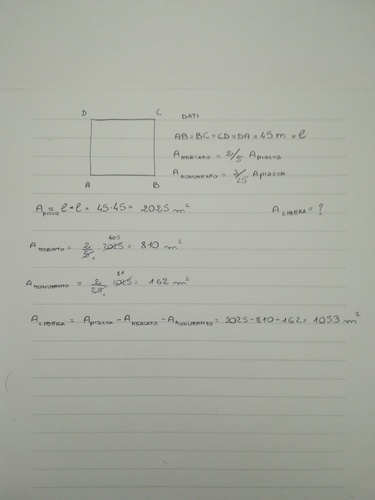 D C DATI
AB = BC = CD = DA = 45 m = l
A MERCATO = 2/5 A PIAZZA
A MONUMENTO = 2/25 A PIAZZA
A B
A = l • l = 45 • 45 = 2025 m² A LIBERA = ?
405
A MERCATO = 2/5 2025 = 810 m²
81
A MONUMENTO = 2/25 2025 = 162 m²
A LIBERA = A PIAZZA - A MERCATO - A MONUMENTO = 2025 - 810 - 162 = 1053 m²